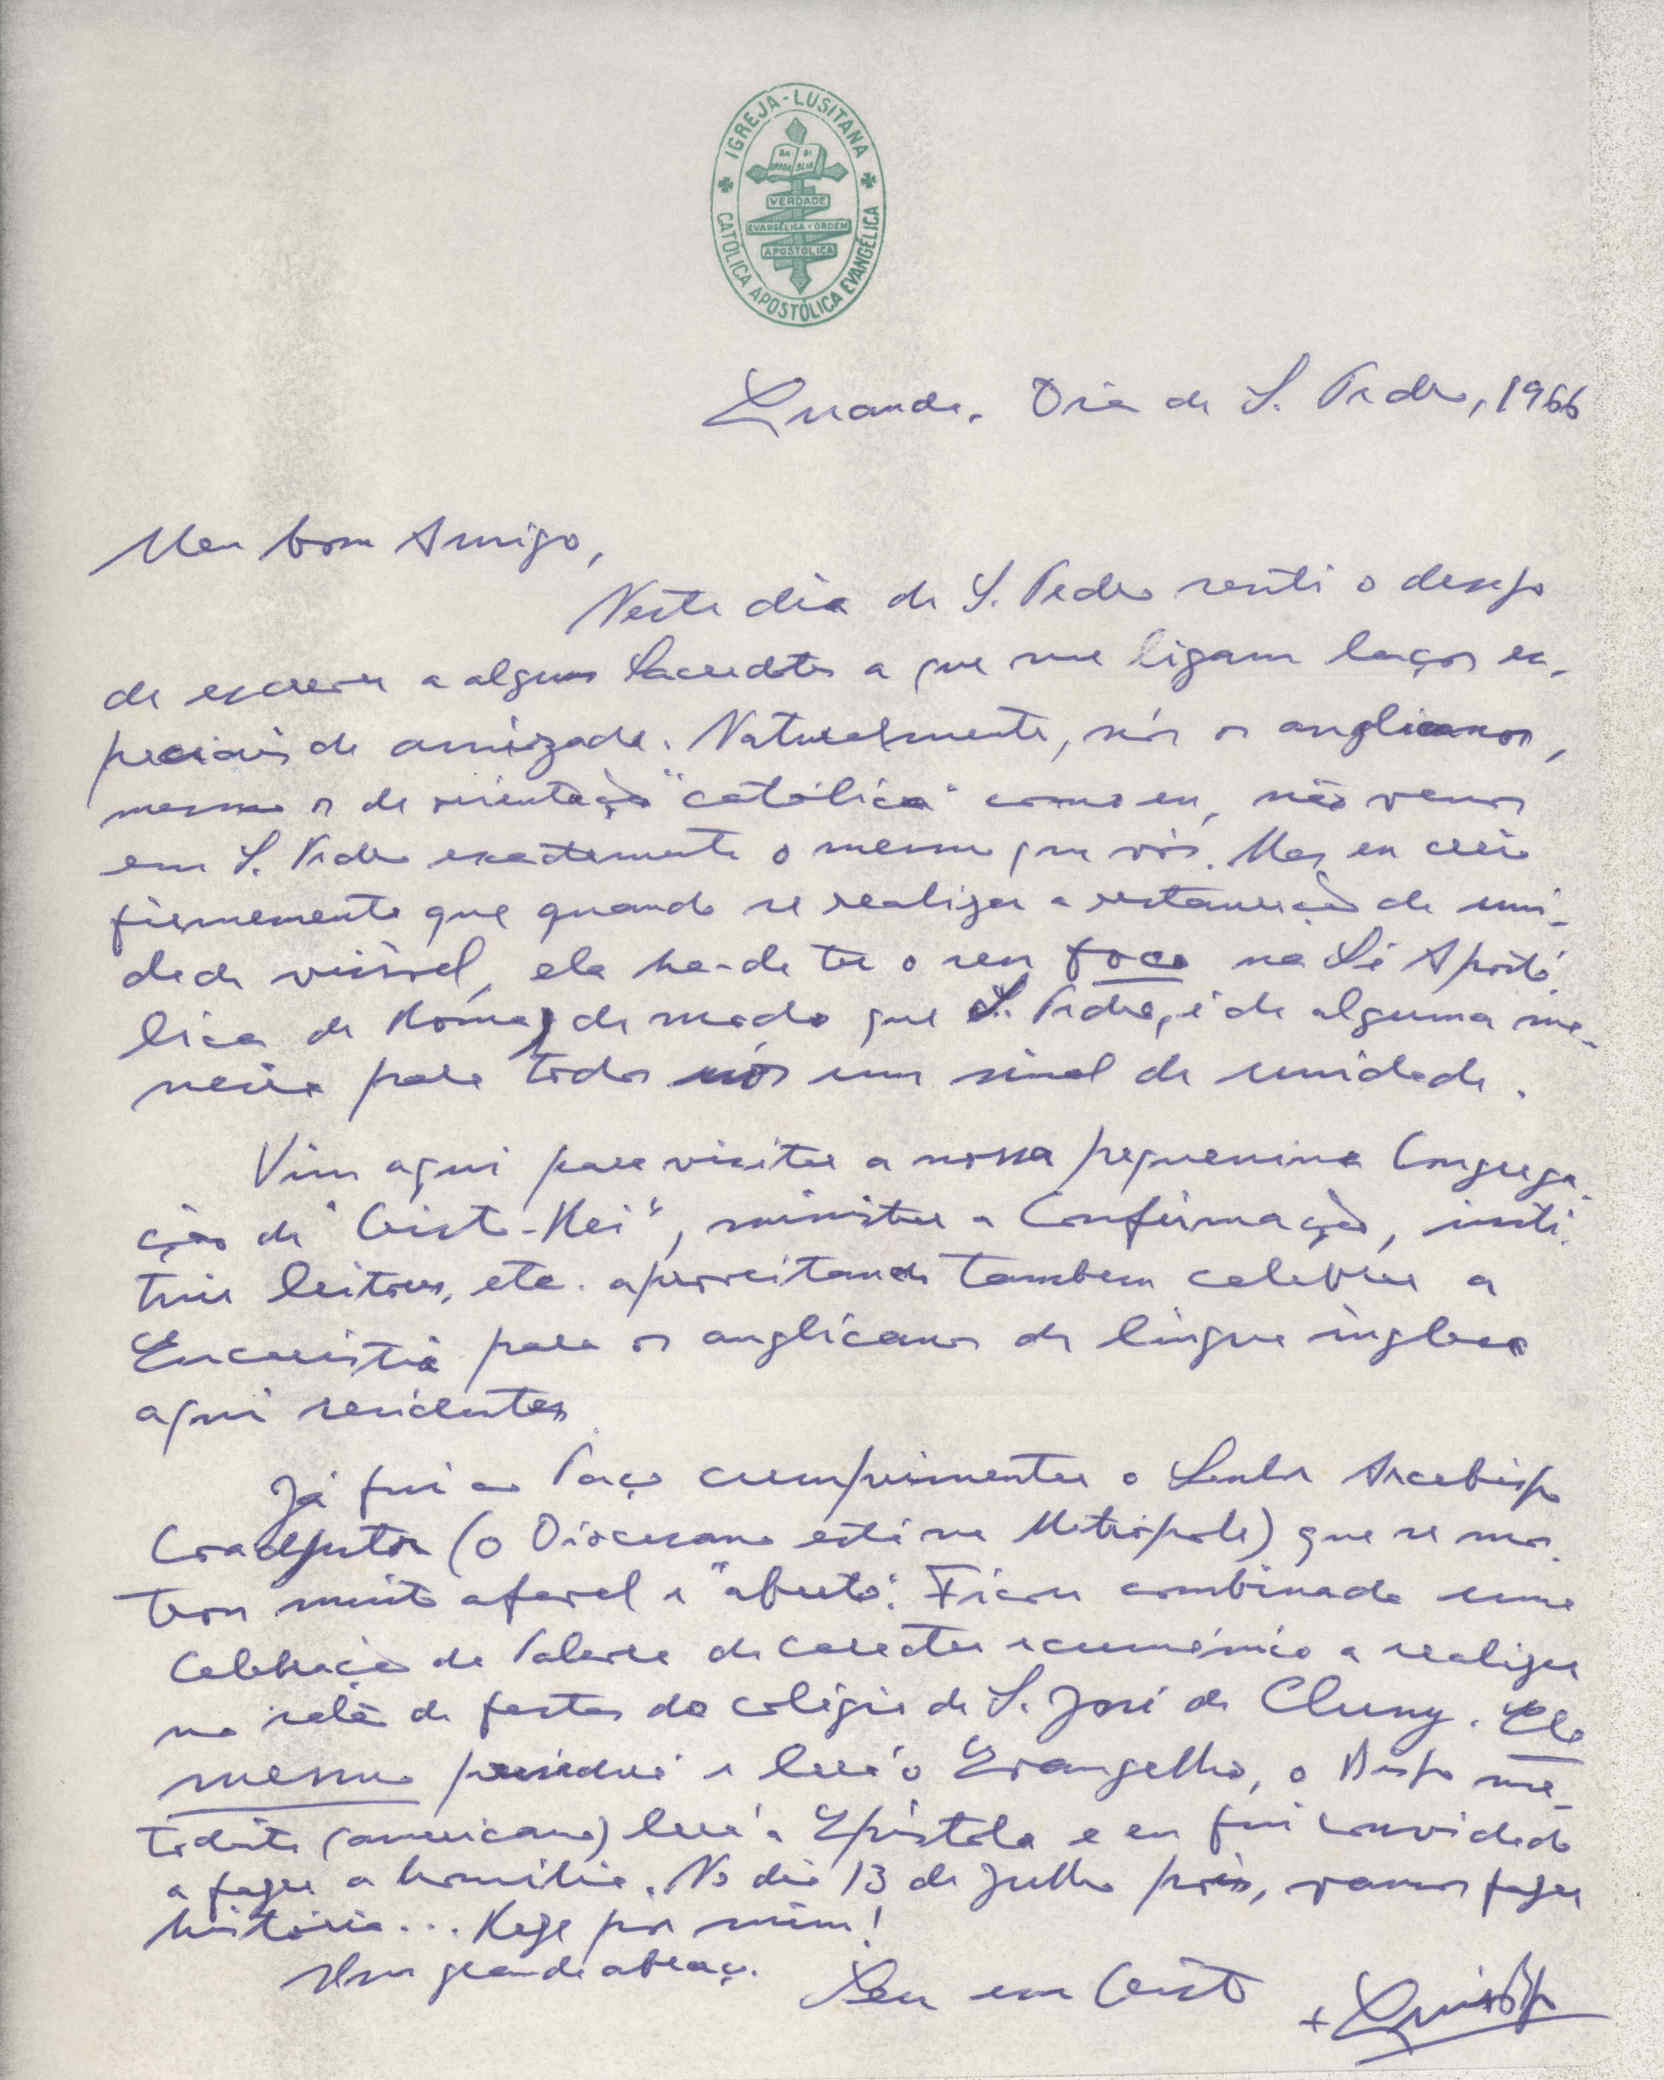 IGREJA-LUSITANA
CATÓLICA APOSTÓLICA EVANGÉLICA
VERDADE
EVANGÉLICA-ORDEM
APOSTÓLICA
Luanda. Dia de S. Pedro, 1966
Meu bom Amigo,
Neste dia de S. Pedro senti o desejo
de escrever a alguns Sacerdotes a que me ligam laços es-
peciais de amizade. Naturalmente, nós os anglicanos,
mesmo os de orientação "católica" como eu, não vemos
em S. Pedro exactamente o mesmo que vós. Mas eu creio
firmemente que quando se realizar a restauração da uni-
dade visível, ela há-de ter o seu foco na Sé Apostó-
lica de Roma, de modo que S. Pedro, é de alguma ma-
neira para todos nós um sinal de unidade.
Vim aqui para visitar a nossa pequenina Congrega-
ção de "Cristo-Rei", ministrar a Confirmação, insti-
tuir leitores, etc. aproveitando tambem celebrar a
Eucaristia para os anglicanos de língua inglesa
aqui residentes.
Já fui ao Paço cumprimentar o Senhor Arcebispo
Coadjutor (o Diocesano está na Metrópole) que se mos-
trou muito afavel e "aberto". Ficou combinada uma
Celebração da Palavra de caracter ecuménico a realizar
no salão de festas do colégio de S. José de Cluny. Ele
mesmo presidirá e lerá o Evangelho, o Bispo me-
todista (americano) lerá a Epístola e eu fui convidado
a fazer a homilia. No dia 13 de Julho pois, vamos fazer
história... Reze por mim!
Um grande abraço.
Seu em Cristo
+ Luis Bp